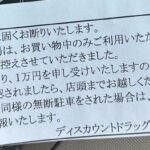 は固くお断りいたします。
場は、お買い物中のみご利用いただ
控えさせていただきました。
り、1万円を申し受けいたしますの
認されましたら、店頭までお越しくだ
同様の無断駐車をされた場合は、
報いたします。
ディスカウントドラッグ